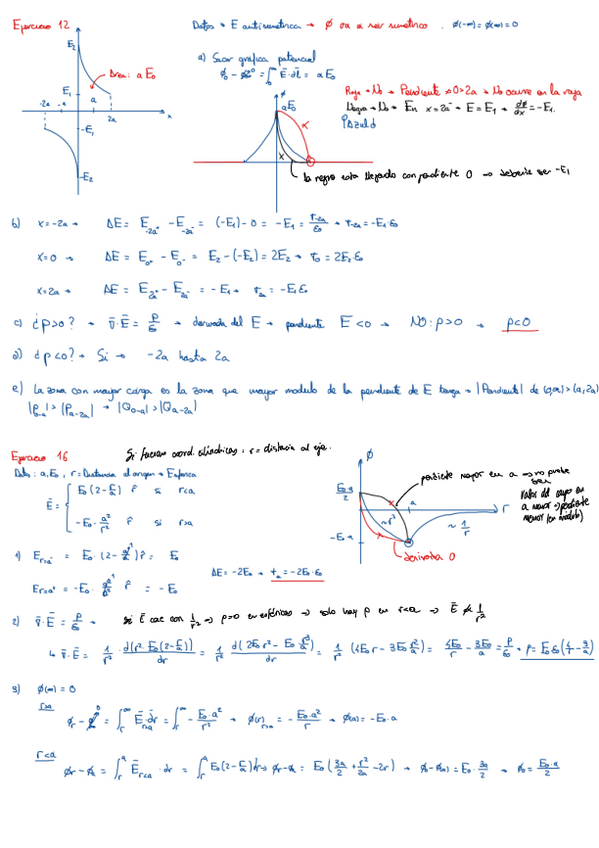 Ejercicio 12
Datos → E antisimétrica → ϕ va a ser simétrico . ϕ(-∞) = ϕ(∞) = 0
E₂
Área: a E₀
E₁
-2a -a a 2a x
-E₁
-E₂
a) Sacar gráfica potencial
ϕ₀ - ϕ∞⁰ = ∫₀^∞ Ē·dL̄ = aE₀
ϕ
aE₀
Roja → No → Pendiente x>2a → No ocurre en la roja
Negra → No → En x=2a⁻ → E = E₁ → dϕ/dx = -E₁.
la negra está llegando con pendiente 0 → debería ser -E₁
b) x=-2a → ΔE = E₋₂ₐ⁺ - E₋₂ₐ⁻ = (-E₁) - 0 = -E₁ = σ₋₂ₐ/ε₀ → σ₋₂ₐ = -E₁ε₀
x=0 → ΔE = E₀⁺ - E₀⁻ = E₂ - (-E₂) = 2E₂ → σ₀ = 2E₂ε₀
x=2a → ΔE = E₂ₐ⁺ - E₂ₐ⁻ = -E₁ → σ₂ₐ = -E₁ε₀
c) ¿ρ>0? → ∇̄·Ē = ρ/ε₀ → derivada del E → pendiente E<0 → NO: ρ>0 → ρ<0
d) ¿ρ<0? → Si → -2a hasta 2a
e) La zona con mayor carga es la zona que mayor modulo de la pendiente de E tenga → |Pendiente| de (0,a) > (a,2a)
|ρ₀₋ₐ| > |ρₐ₋₂ₐ| → |Q₀₋ₐ| > |Qₐ₋₂ₐ|
Ejercicio 16
Si fueran coord. cilíndricas: r = distancia al eje.
Datos: a, E₀, r = Distancia al origen → Esférica
Ē = { E₀(2 - r/a) r̂ si r<a
-E₀·a²/r² r̂ si r>a
ϕ
E₀·a/2
-E₀·a
a
r
~r²
~1/r
pendiente mayor en a → no puede ser
Valor del campo en a menor → pendiente menor (en módulo)
derivada 0
1) Eᵣ₌ₐ⁻ = E₀·(2 - a/a)r̂ = E₀
Eᵣ₌ₐ⁺ = -E₀·a²/a² r̂ = -E₀
ΔE = -2E₀ → σₐ = -2E₀·ε₀
2) ∇̄·Ē = ρ/ε₀ → si Ē cae con 1/r² → ρ=0 en esféricas → solo hay ρ en r<a → Ē 1/r²
↳ ∇̄·Ē = 1/r² · d(r²·E₀(2 - r/a))/dr = 1/r² d(2E₀r² - E₀r³/a)/dr = 1/r² (4E₀r - 3E₀r²/a) = 4E₀/r - 3E₀/a = ρ/ε₀ → ρ = E₀ε₀(4/r - 3/a)
3) ϕ(∞) = 0
r>a
ϕᵣ - ϕ∞⁰ = ∫ᵣ^∞ Ēᵣ>ₐ·dr̄ = ∫ᵣ^∞ -E₀·a²/r² → ϕ(r)ᵣ>ₐ = -E₀·a²/r → ϕ(a) = -E₀·a
r<a
ϕᵣ - ϕₐ = ∫ᵣ^a Ēᵣ<ₐ·dr = ∫ᵣ^a E₀(2 - r/a)dr → ϕᵣ - ϕₐ = E₀(3a/2 + r²/2a - 2r) → ϕ₀ - ϕ(a) = E₀·3a/2 → ϕ₀ = E₀·a/2